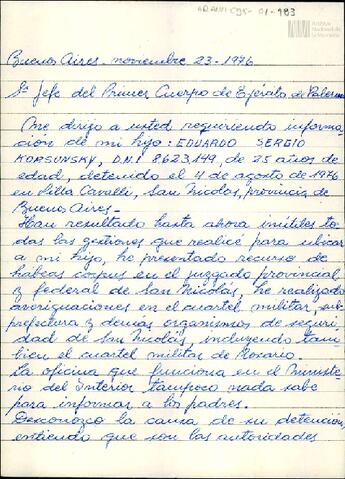 Buenos Aires - noviembre 23-1976
Sr Jefe del Primer Cuerpo de Ejército de Palermo
Me dirijo a usted requiriendo informa
ción de mi hijo: EDUARDO SERGIO
KORSUNSKY, D.N.I. 8623.149, de 25 años de
edad, detenido el 4 de agosto de 1976
en Villa Cavalli, San Nicolas, provincia de
Buenos Aires -
Han resultado hasta ahora inútiles to
das las gestiones que realicé para ubicar
a mi hijo, he presentado recurso de
habeas corpus en el juzgado provincial
y federal de San Nicolás, he realizado
averiguaciones en el cuartel militar, sub
prefectura y demás organismos de seguri
dad de San Nicolás, incluyendo tam
bien el cuartel militar de Rosario.
La oficina que funciona en el Ministe
rio del Interior tampoco nada sabe
para informar a los padres.
Desconozco la causa de su detención,
entiendo que son las autoridades